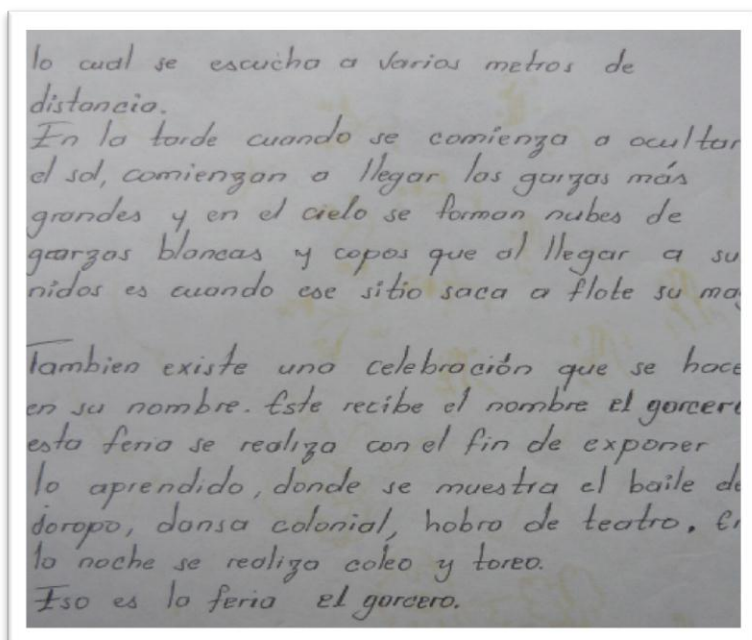 lo cual se escucha a varios metros de
distancia.
En la tarde cuando se comienza a ocultar
el sol, comienzan a llegar las garzas más
grandes y en el cielo se forman nubes de
garzas blancas y copos que al llegar a su
nidos es cuando ese sitio saca a flote su ma
Tambien existe una celebración que se hace
en su nombre. Este recibe el nombre el garcero
esta feria se realiza con el fin de exponer
lo aprendido, donde se muestra el baile de
joropo, dansa colonial, hobra de teatro. En
la noche se realiza coleo y toreo.
Eso es la feria el garcero.